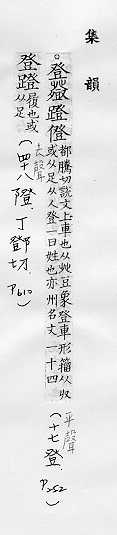 集韻
。登𤼷蹬僜
都騰切説文上車也从癶豆象登車形籀从収
或从足从人登一曰姓也亦州名文一十四
(平聲 十七登. P252)
登蹬
履也或
从足
(去聲 四十八隥. 丁鄧切. P610)